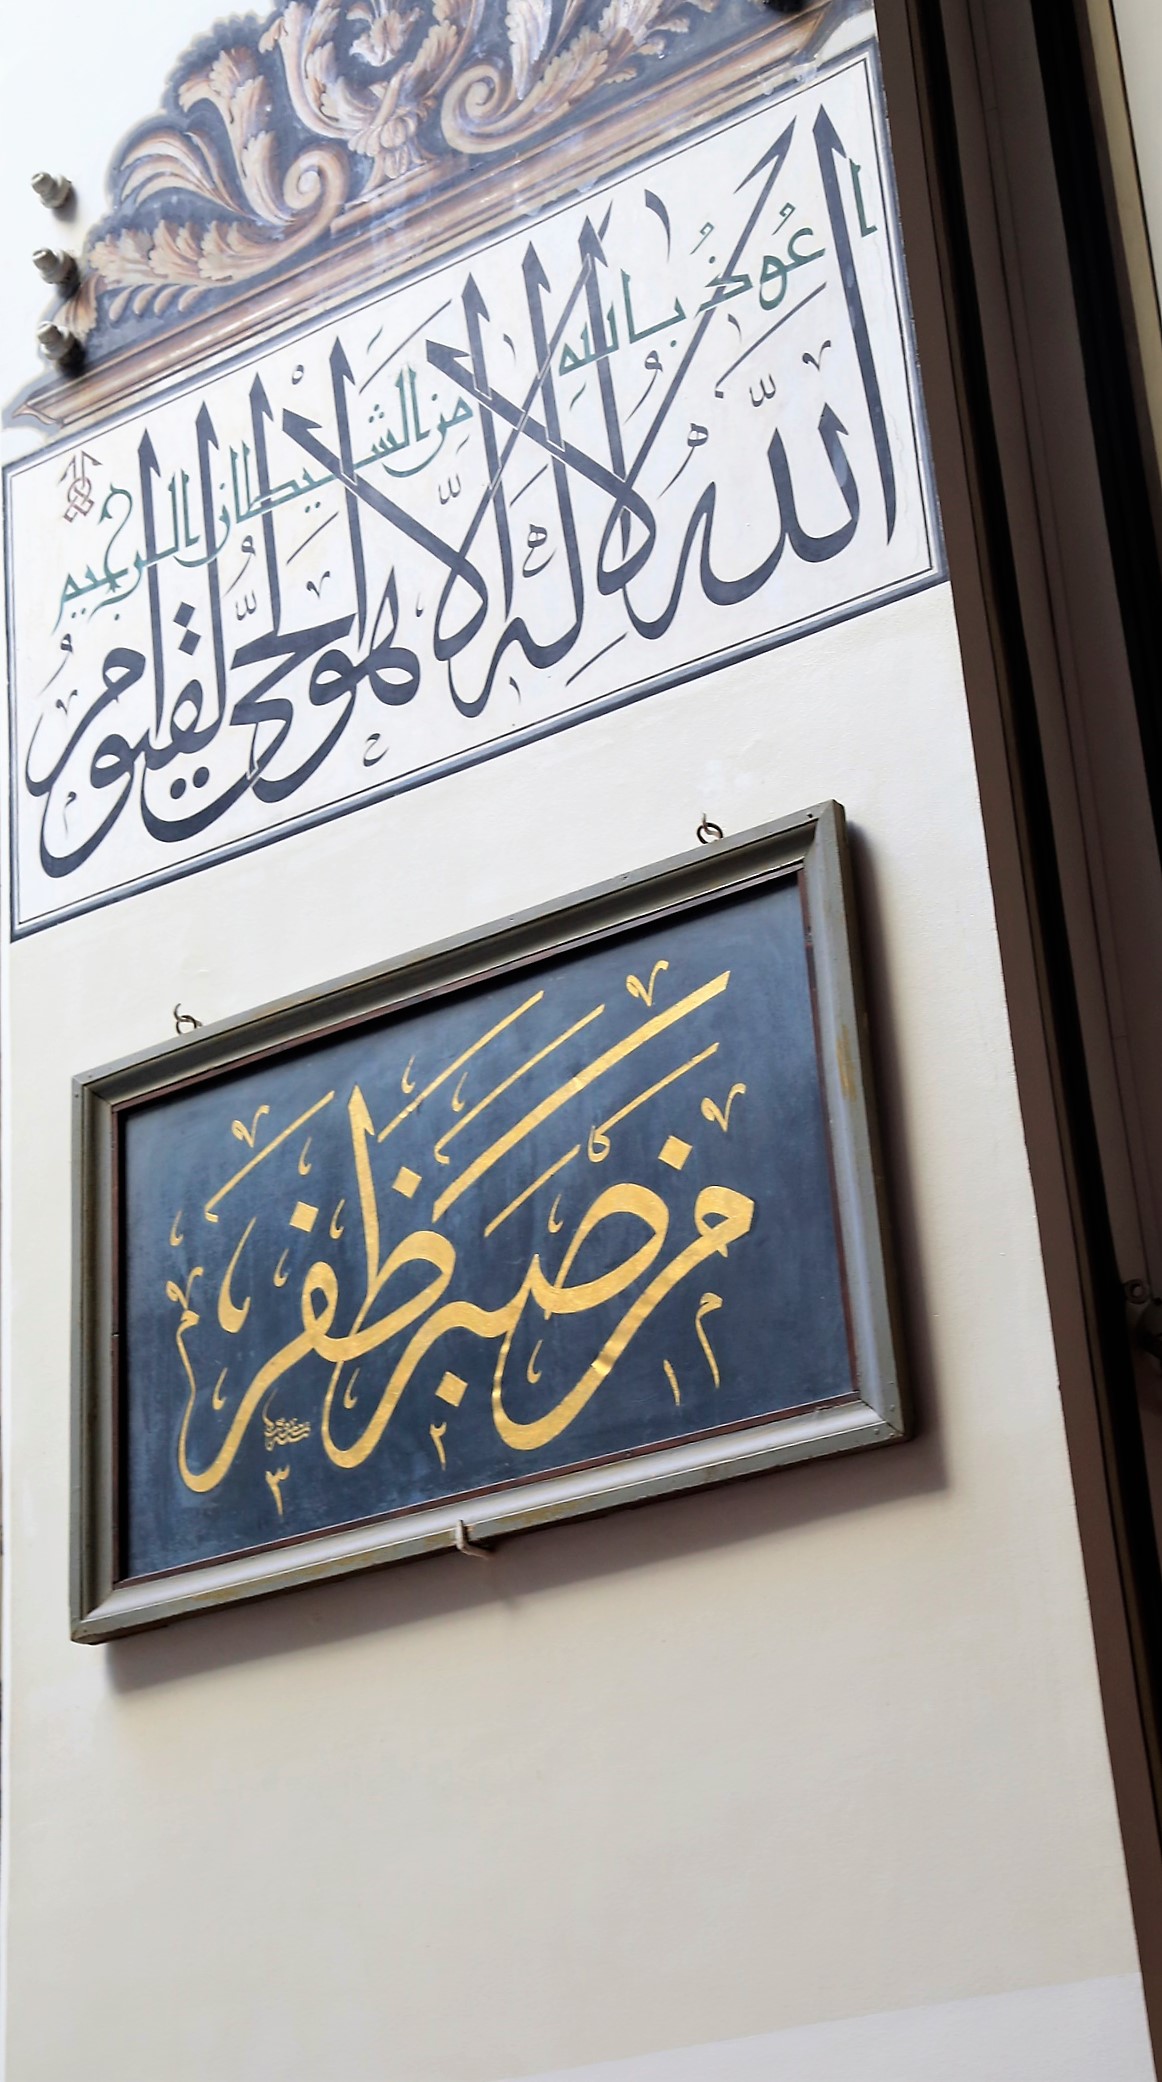 اعوذ بالله من الشيطان الرجيم
الله لا اله الا هو الحي القيوم
من صبر ظفر
١ ٢ ٣